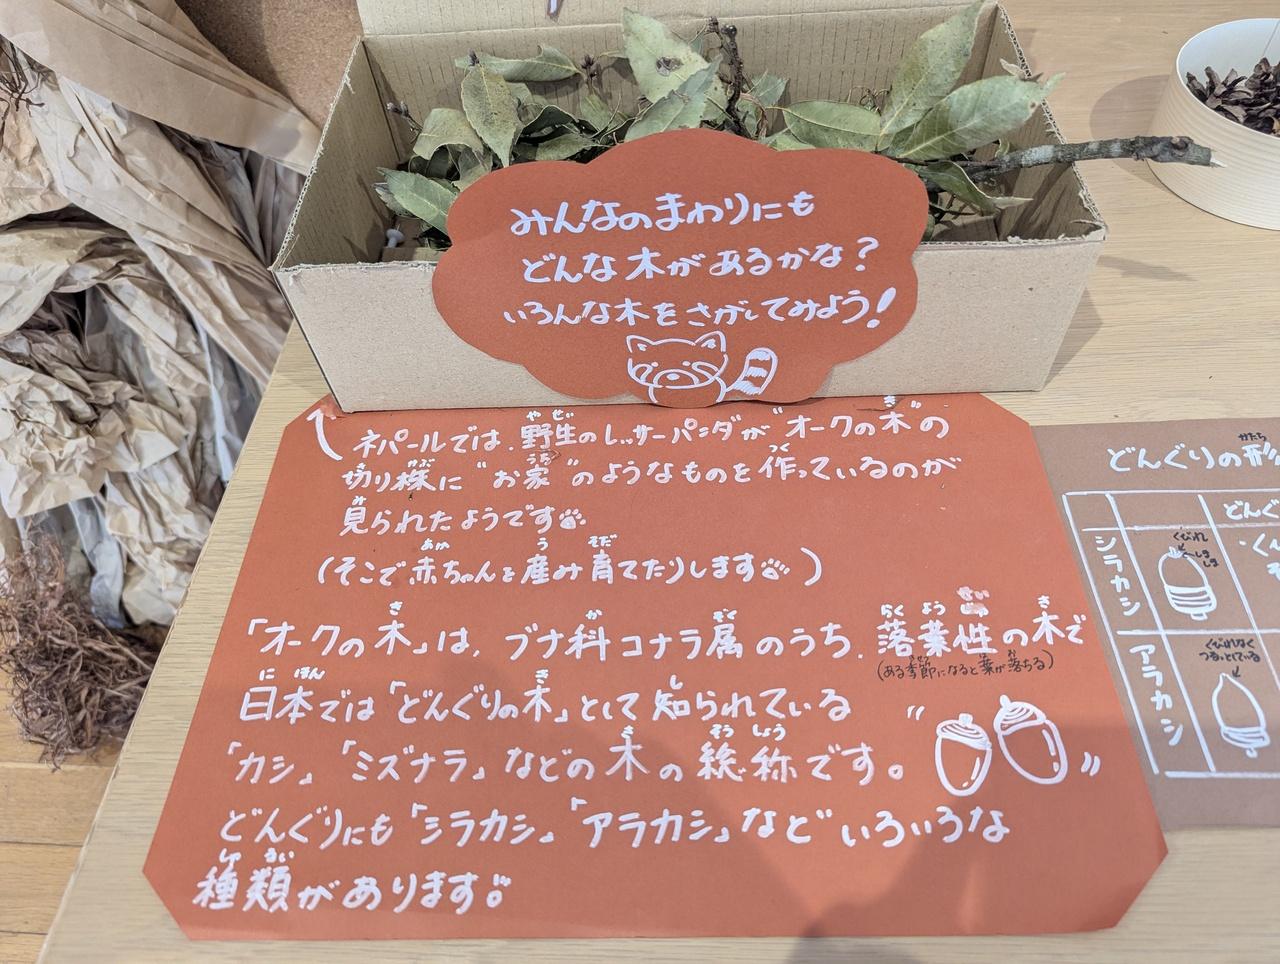 みんなのまわりにも
どんな木があるかな?
いろんな木をさがしてみよう!
ネパールでは、野生のレッサーパンダが"オークの木"の
切り株に"お家"のようなものを作っているのが
見られたようです
(そこで赤ちゃんを産み育てたりします)
「オークの木」は、ブナ科コナラ属のうち、落葉性の木で
(ある季節になると葉が落ちる)
日本では「どんぐりの木」として知られている
「カシ」「ミズナラ」などの木の総称です。
どんぐりにも「シラカシ」「アラカシ」などいろいろな
種類があります
どんぐりの形
どんぐ
シラカシ
くびれ
アラカシ
くびれなく
つるっとしている